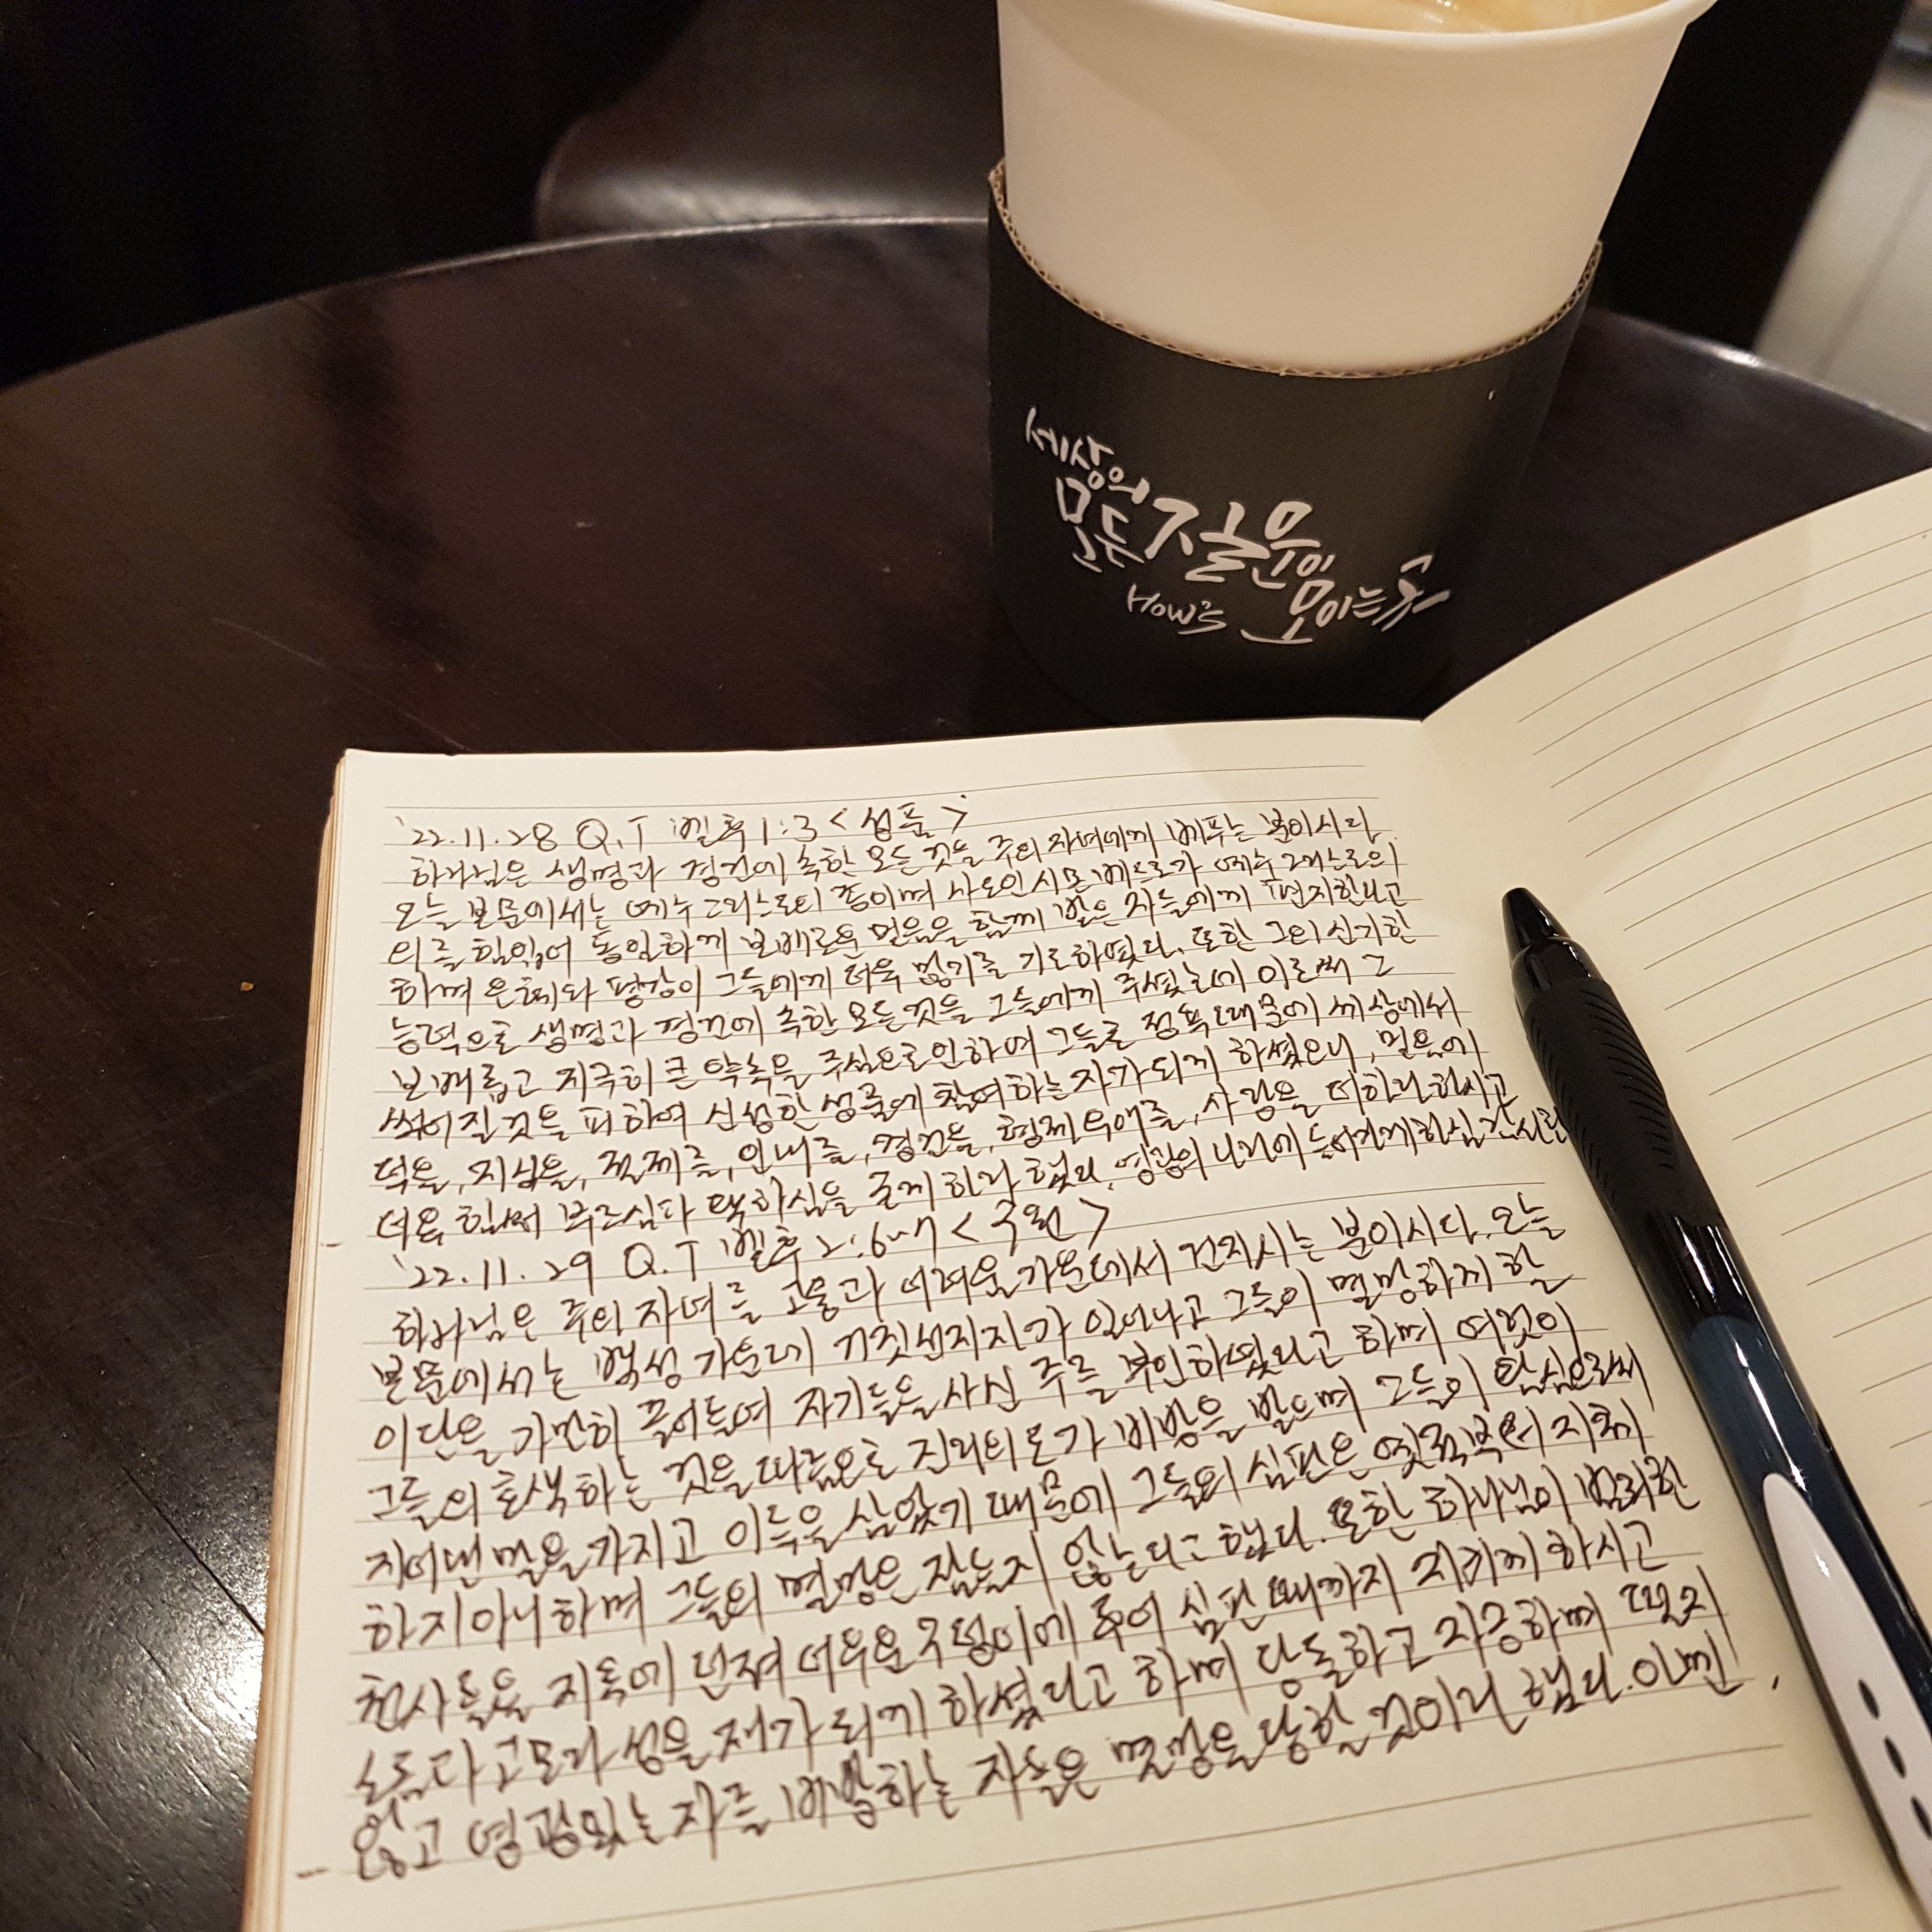 세상의
모든 질문이
모이는 곳
How's
'22.11.28 Q.T 벧후 1:3 <성품>
하나님은 생명과 경건에 속한 모든 것을 주의 자녀에게 베푸는 분이시다.
오늘 본문에서는 예수 그리스도의 종이며 사도인 시몬 베드로가 예수 그리스도의
의를 힘입어 동일하게 보배로운 믿음을 함께 받은 자들에게 편지한다고
하며 은혜와 평강이 그들에게 더욱 많기를 기도하였다. 또한 그의 신기한
능력으로 생명과 경건에 속한 모든 것을 그들에게 주셨는데 이로써 그
보배롭고 지극히 큰 약속을 주심으로 인하여 그들로 정욕 때문에 세상에서
썩어질 것을 피하여 신성한 성품에 참여하는 자가 되게 하셨으니, 믿음에
덕을, 지식을, 절제를, 인내를, 경건을, 형제우애를, 사랑을 더하라 하시고
더욱 힘써 부르심과 택하심을 굳게 하라 했다. 영광의 나라에 들어가게 하심
'22.11.29 Q.T 벧후 2:6~7 <구원>
하나님은 주의 자녀를 고통과 어려움 가운데서 건지시는 분이시다. 오늘
본문에서는 백성 가운데 거짓선지자가 일어나고 그들이 멸망하게 할
이단을 가만히 끌어들여 자기들을 사신 주를 부인하였다고 하며 여럿이
그들의 호색하는 것을 따름으로 진리의 도가 비방을 받으며 그들이 탐심으로써
지어낸 말을 가지고 이득을 삼았기 때문에 그들의 심판은 옛적부터 지체
하지 아니하며 그들의 멸망은 잠들지 않는다고 했다. 또한 하나님이 범죄한
천사들을 지옥에 던져 어두운 구덩이에 두어 심판 때까지 지키게 하시고
소돔과 고모라 성을 재가 되게 하셨다고 하며 당돌하고 자긍하며 떨지
않고 영광있는 자를 비방하는 자들은 멸망을 당할 것이라 했다. 아멘.